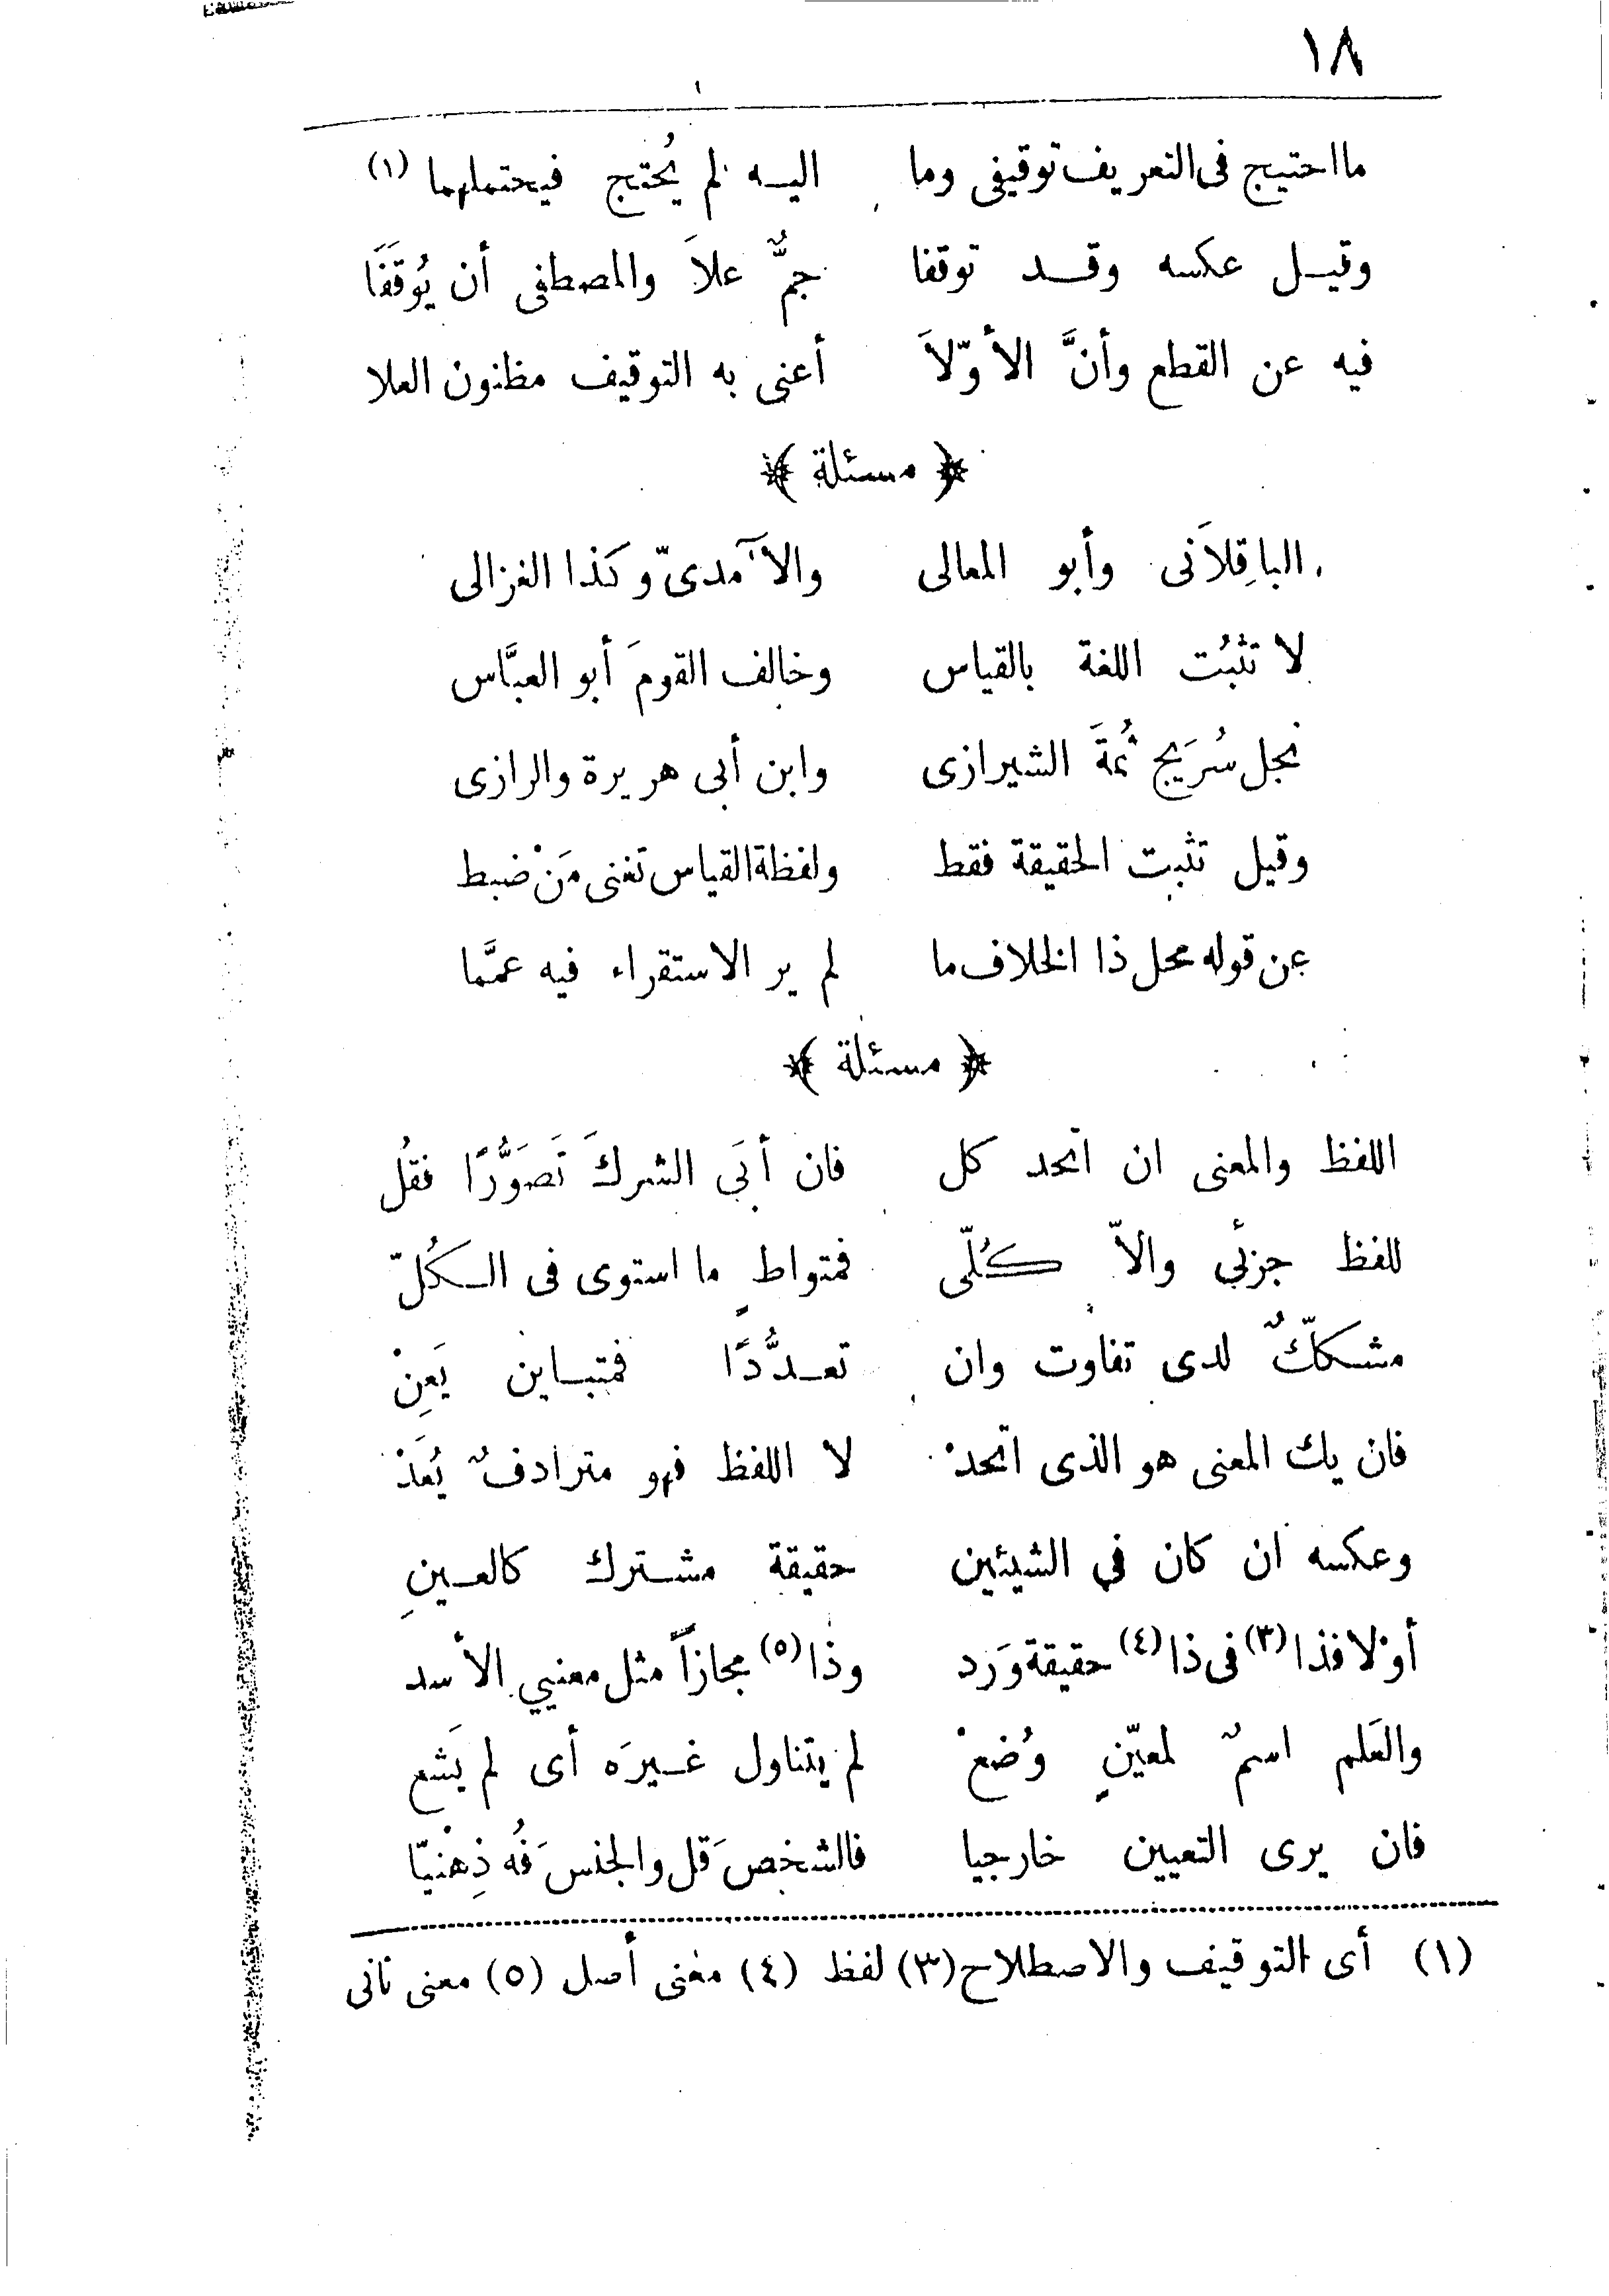 ١٨
ما احتيج فى التعريف توقيفى وما اليـه لم يُحتج فيحتملهما (١)
وقيـل عكسه وقـد توقفا جمٌّ علاَ والمصطفى أن يُوقَفَا
فيه عن القطع وأنَّ الأوّلاَ أعنى به التوقيف مظنون العلا
﴿ مسئلة ﴾
الباقِلاَنى وأبو المعالى والآمدىّ وكذا الغزالى
لا تثبُت اللغة بالقياس وخالف القومَ أبو العبَّاس
نجل سُرَيج ثُمةَ الشيرازى وابن أبى هريرة والرازى
وقيل تثبت الحقيقة فقط ولفظة القياس تغنى مَنْ ضبط
عن قوله محل ذا الخلاف ما لم ير الاستقراء فيه عمَّما
﴿ مسئلة ﴾
اللفظ والمعنى ان اتحد كل فان أبَى الشركَ تَصَوُّرًا فقُل
للفظ جزئى والاّ كُلّى فمتواطٍ ما استوى فى الـكُلّ
مشككٌّ لدى تفاوت وان تعـدُّدًا فمتبـاين يَعِنْ
فان يك المعنى هو الذى اتحدْ لا اللفظ فهو مترادفٌ يُعَدْ
وعكسه ان كان فى الشيئين حقيقة مشـترك كالعـينِ
أوْلا فذا (٣) فى ذا (٤) حقيقة وَرَد وذا (٥) مجازاً مثل معنيي الأسد
والعَلم اسمٌ لمعيّنٍ وُضعْ لم يتناول غـيرَه أى لم يَشع
فان يرى التعيين خارجيا فالشخصَ قل والجنسَ فُه ذِهْنيّا
(١) أى التوقيف والاصطلاح (٣) لفظ (٤) معنى أصل (٥) معنى ثانى